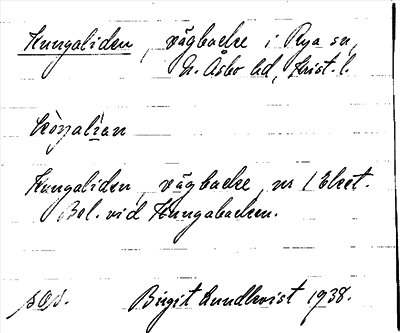 Kungaliden, vägbacke i Rya sn,
N. Åsbo hd, Krist. l.
Kungaliden, vägbacke, nr 1 Ehet.
Bel. vid Kungabacken.
sOs. Birgit Lundkvist 1938.